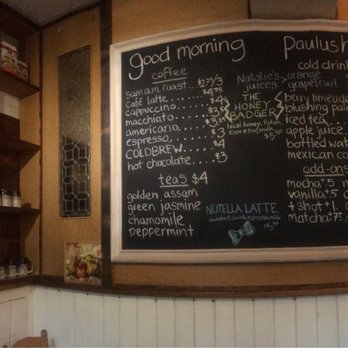 good morning
coffee
samain roast . . $2.25/3
café latte . . . . $4
cappuccino . . . . $4
macchiato . . . . $3
americano . . . . $3
espresso . . . . $3
COLDBREW . . $4
hot chocolate . . . $3
teas $4
golden assam
green jasmine
chamomile
peppermint
Natalie's
juices
THE
HONEY
BADGER
local honey
espresso, milk
NUTELLA LATTE
Paulush
cold drin
orange
grapefruit
berry limeade
blushing pal
iced tea
apple juice
bottled wat
mexican co
add-ons
mocha
vanilla
+ shot
matcha